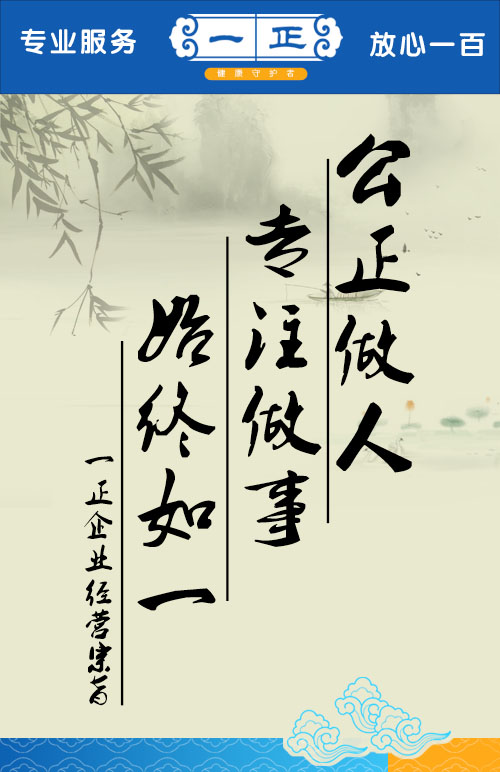 专业服务
一正
放心一百
健康守护者
公正做人
专注做事
始终如一
一正企业经营宗旨